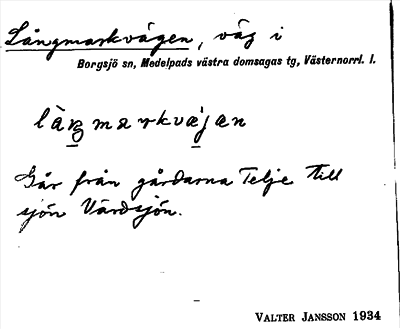 Långmarkvägen, väg i
Borgsjö sn, Medelpads västra domsagas tg, Västernorrl. l.
làŋmarkvæ̀jæn
Går från gårdarna Telje till
sjön Vårdsjön.
VALTER JANSSON 1934